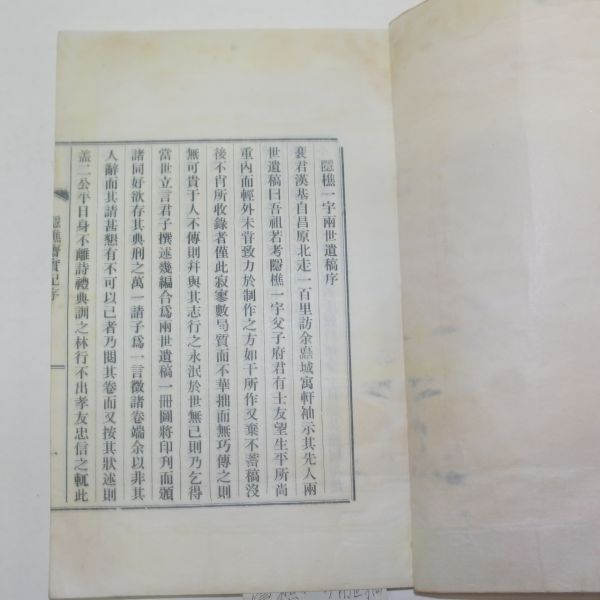 隱樵一宇兩世遺稿序
裵君漢基自昌原北走一百里訪余鼇城寓軒袖示其先人兩
世遺稿曰吾祖若考隱樵一宇父子府君有士友望生平所尚
重內而輕外未甞致力於制作之方如干所作又棄不蓄稿沒
後不肖所收錄者僅此寂寥數局質而不華拙而無巧傳之則
無可貴于人不傳則幷與其志行之永泯於世無已則乃乞得
當世立言君子撰述幾編合爲兩世遺稿一冊圖將印刋而頒
諸同好欲存其典刑之萬一請子爲一言徵諸卷端余以非其
人辭而其請甚懇有不可以已者乃閱其卷而又按其狀述則
盖二公平日身不離詩禮典訓之林行不出孝友忠信之軏此
隱樵齋實記序
一